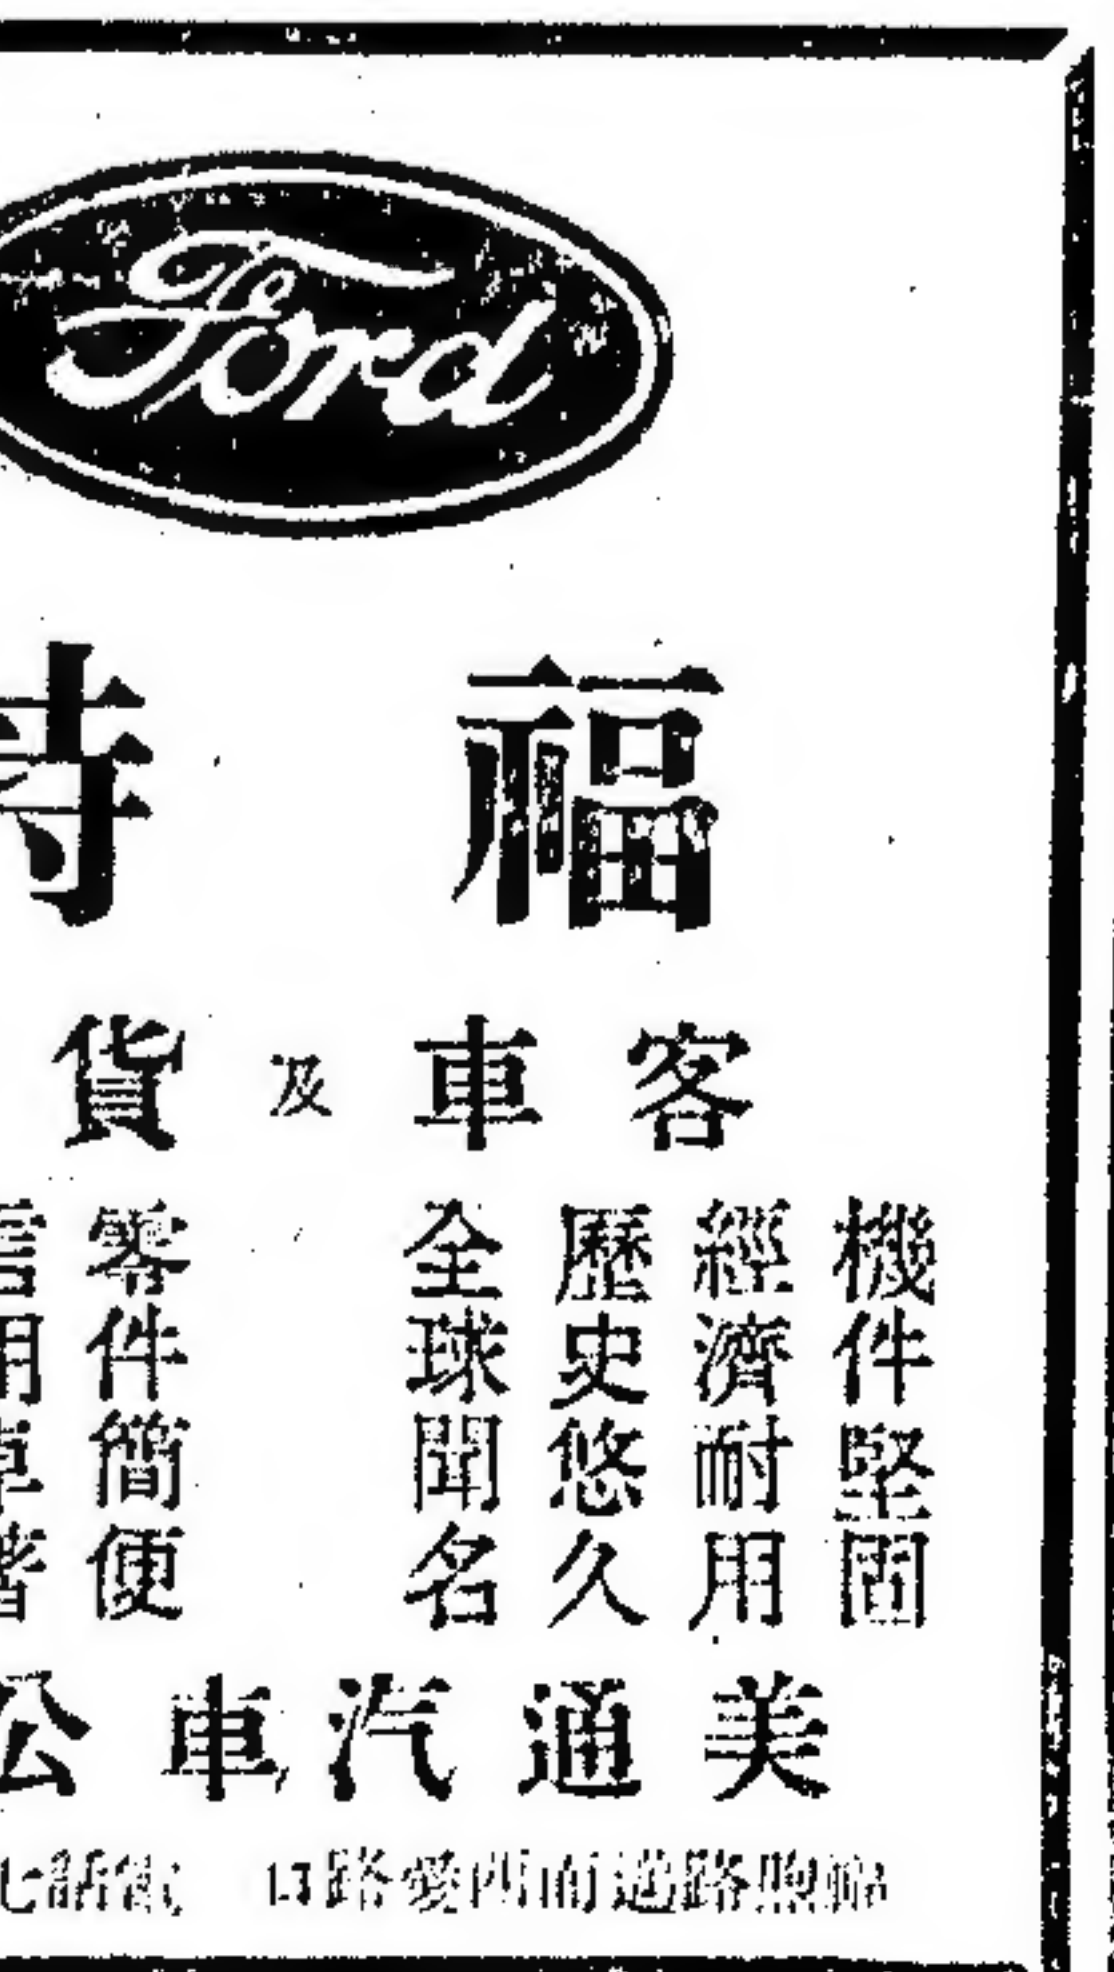 Ford
福特
客車及貨
機件堅固
經濟耐用
歷史悠久
全球聞名
零件簡便
信用卓
美通汽車公
福煦路邁而西愛路口 電話七